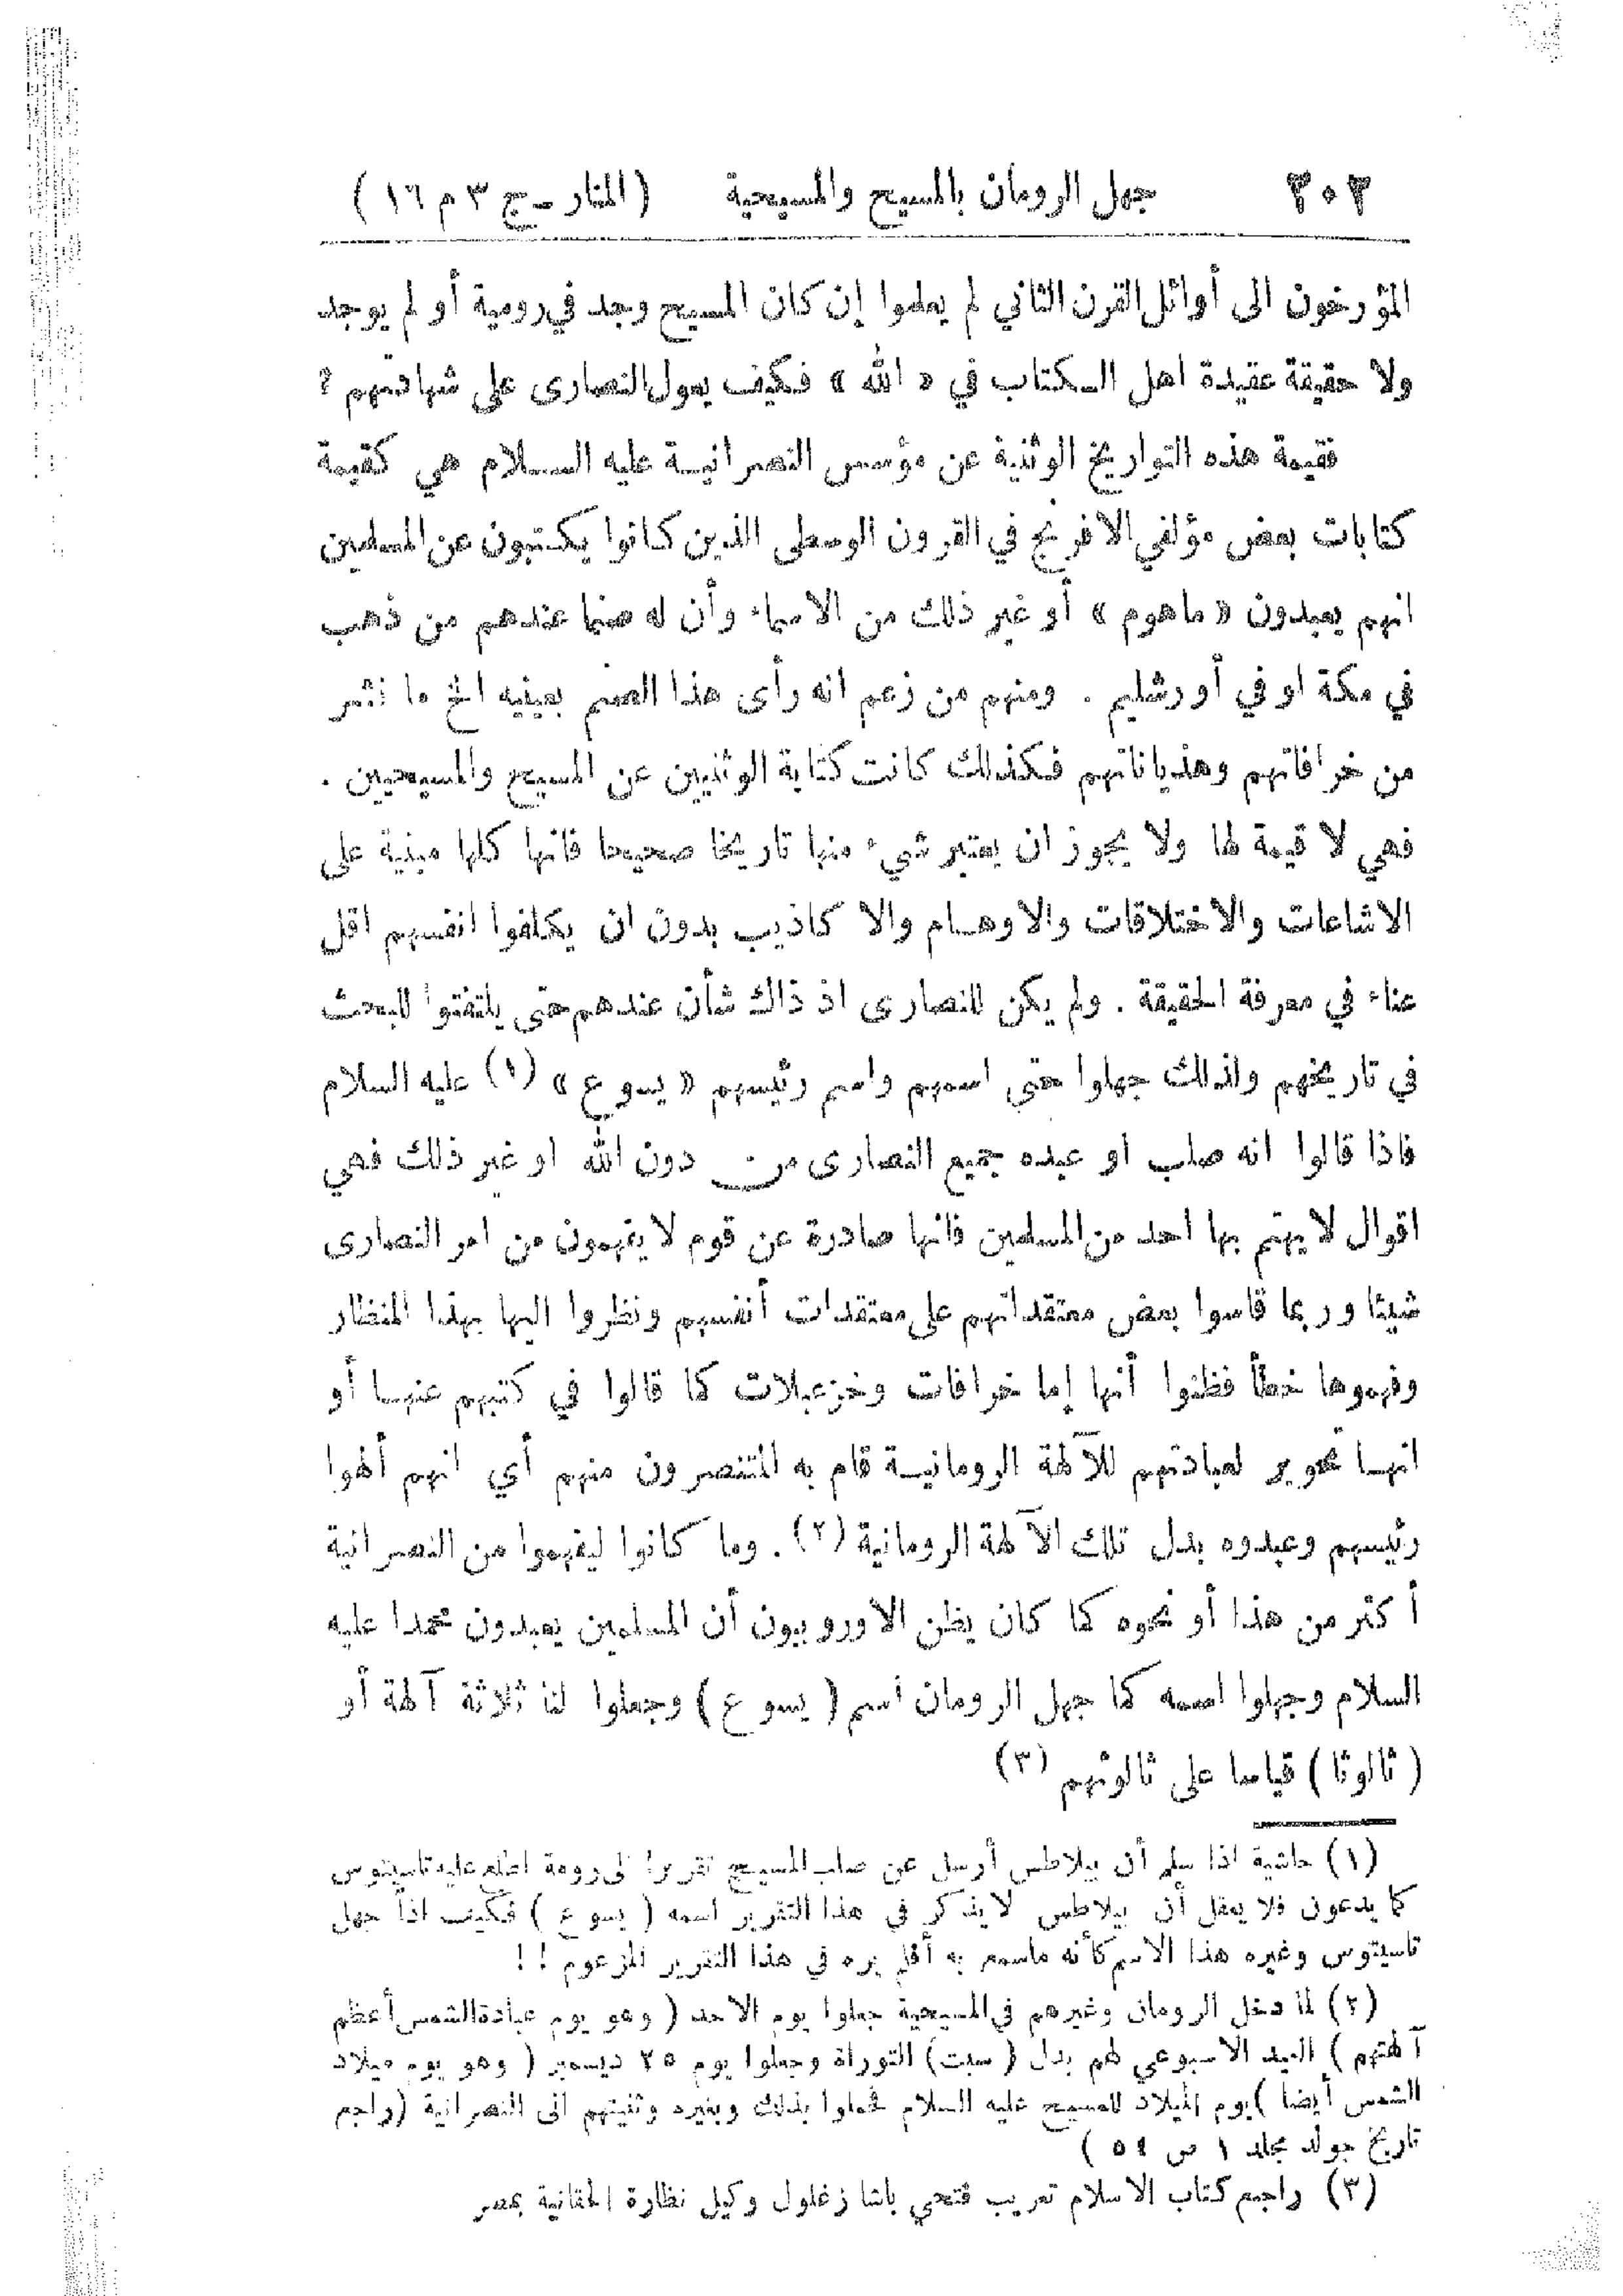 ٢٠٢ جهل الرومان بالمسيح والمسيحية (المنار ـ ج ٣ م ١٦)
المؤرخون الى أوائل القرن الثاني لم يعلموا إن كان المسيح وجد في رومية أو لم يوجد
ولا حقيقة عقيدة اهل الكتاب في « الله » فكيف يعول النصارى على شهادتهم ؟
فقيمة هذه التواريخ الوثنية عن مؤسس النصرانية عليه السلام هي كقيمة
كتابات بعض مؤلفي الافرنج في القرون الوسطى الذين كانوا يكتبون عن المسلمين
انهم يعبدون « ماهوم » أو غير ذلك من الاسماء وأن له صنما عندهم من ذهب
في مكة او في أورشليم . ومنهم من زعم انه رأى هذا الصنم بعينيه الخ ما نشر
من خرافاتهم وهذياناتهم فكذلك كانت كتابة الوثنيين عن المسيح والمسيحيين .
فهي لا قيمة لها ولا يجوز ان يعتبر شيء منها تاريخا صحيحا فانها كلها مبنية على
الاشاعات والاختلاقات والاوهام والا كاذيب بدون ان يكلفوا انفسهم اقل
عناء في معرفة الحقيقة . ولم يكن للنصارى اذ ذاك شأن عندهم حتى يلتفتوا للبحث
في تاريخهم ولذلك جهلوا حتى اسمهم واسم رئيسهم « يسوع » (١) عليه السلام
فاذا قالوا انه صلب او عبده جميع النصارى من دون الله او غير ذلك فهي
اقوال لا يهتم بها احد من المسلمين فانها صادرة عن قوم لا يفهمون من امر النصارى
شيئا وربما قاسوا بعض معتقداتهم على معتقدات أنفسهم ونظروا اليها بهذا المنظار
وفهموها خطأ فظنوا أنها إما خرافات وخزعبلات كما قالوا في كتبهم عنها أو
انها تحوير لعبادتهم للآلهة الرومانية قام به المتنصرون منهم أي انهم ألهوا
رئيسهم وعبدوه بدل تلك الآلهة الرومانية (٢) . وما كانوا ليفهموا من النصرانية
أكثر من هذا أو نحوه كما كان يظن الاوروبيون أن المسلمين يعبدون محمدا عليه
السلام وجهلوا اسمه كما جهل الرومان اسم ( يسوع ) وجعلوا لنا ثلاثة آلهة أو
( ثالوثا ) قياسا على ثالوثهم (٣)
(١) حاشية اذا سلم أن بيلاطس أرسل عن صلب المسيح تقريرا الى رومة اطلع عليه تاسيتوس
كما يدعون فلا يعقل أن بيلاطس لا يذكر في هذا التقرير اسمه ( يسوع ) فكيف اذاً جهل
تاسيتوس وغيره هذا الاسم كأنه ماسمع به أفلم يره في هذا التقرير المزعوم ! !
(٢) لما دخل الرومان وغيرهم في المسيحية جعلوا يوم الاحد ( وهو يوم عبادة الشمس أعظم
آلهتهم ) العيد الاسبوعي لهم بدل ( سبت ) التوراة وجعلوا يوم ٢٥ ديسمبر ( وهو يوم ميلاد
الشمس أيضا ) يوم الميلاد للمسيح عليه السلام فحملوا بذلك وبغيره وثنيتهم الى النصرانية (راجع
تاريخ جولد مجلد ١ ص ٥٤ )
(٣) راجع كتاب الاسلام تعريب فتحي باشا زغلول وكيل نظارة الحقانية بمصر